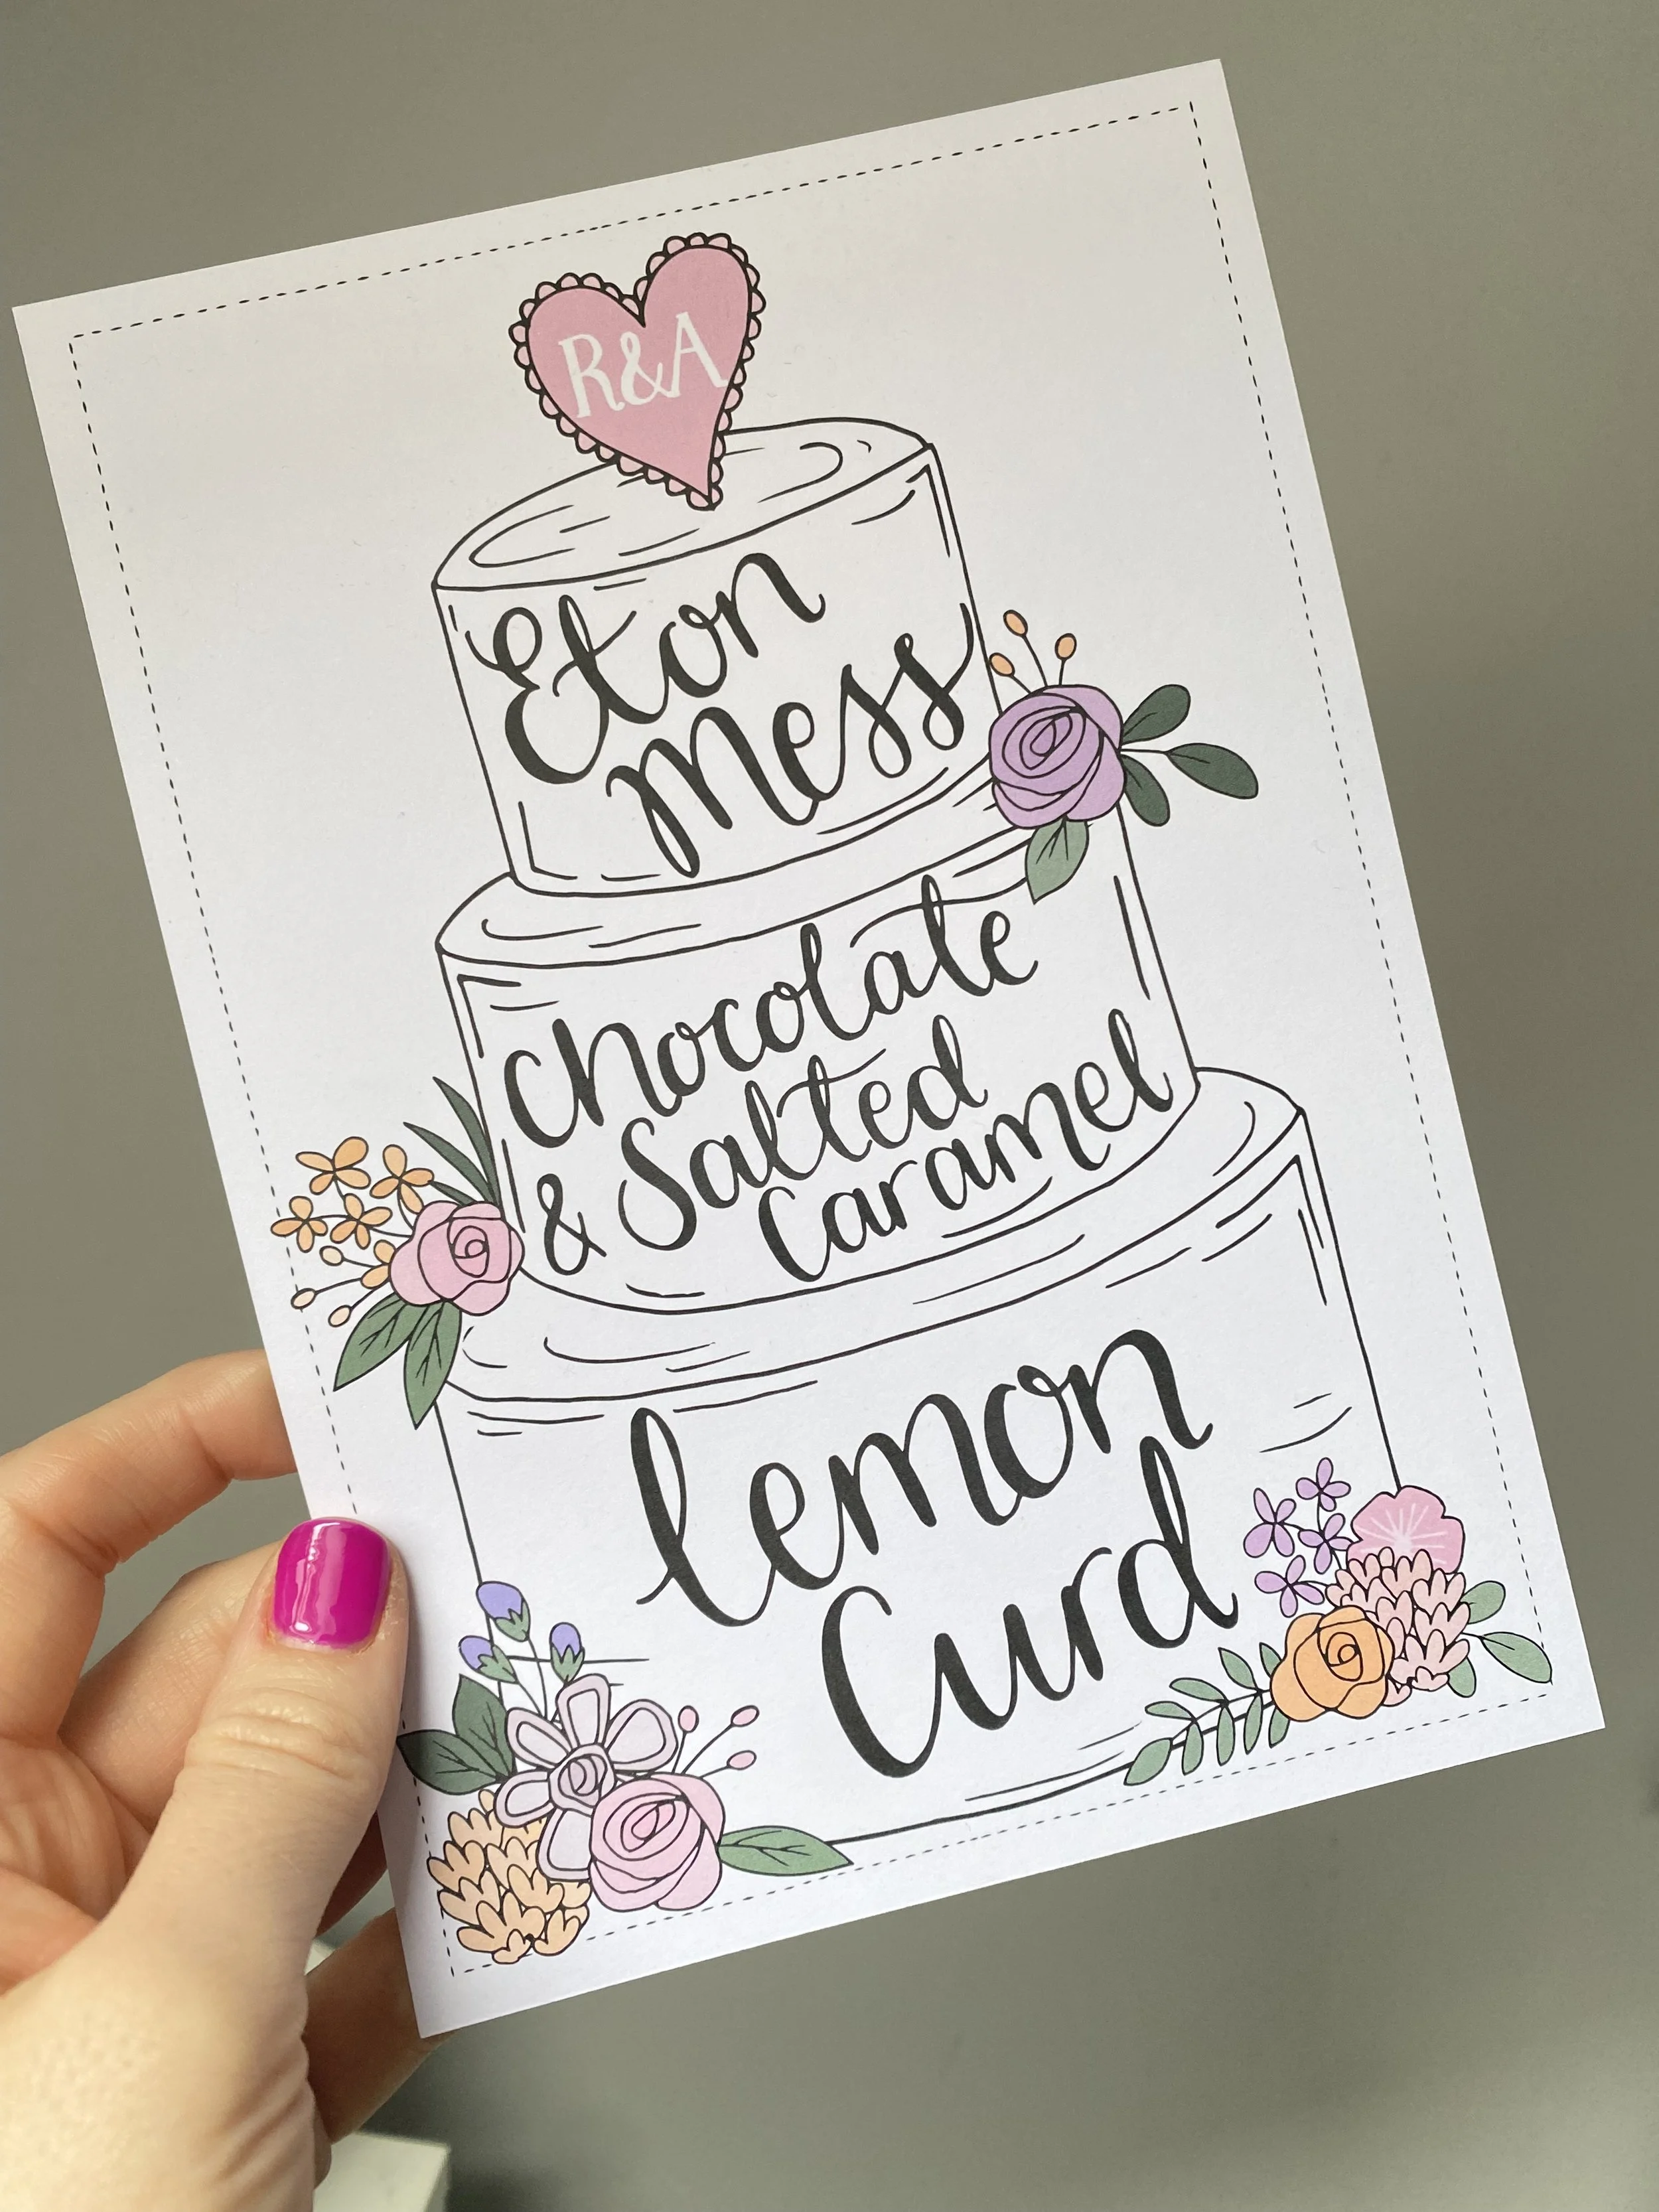 R&A
Eton
Mess
Chocolate
& Salted
Caramel
lemon
Curd